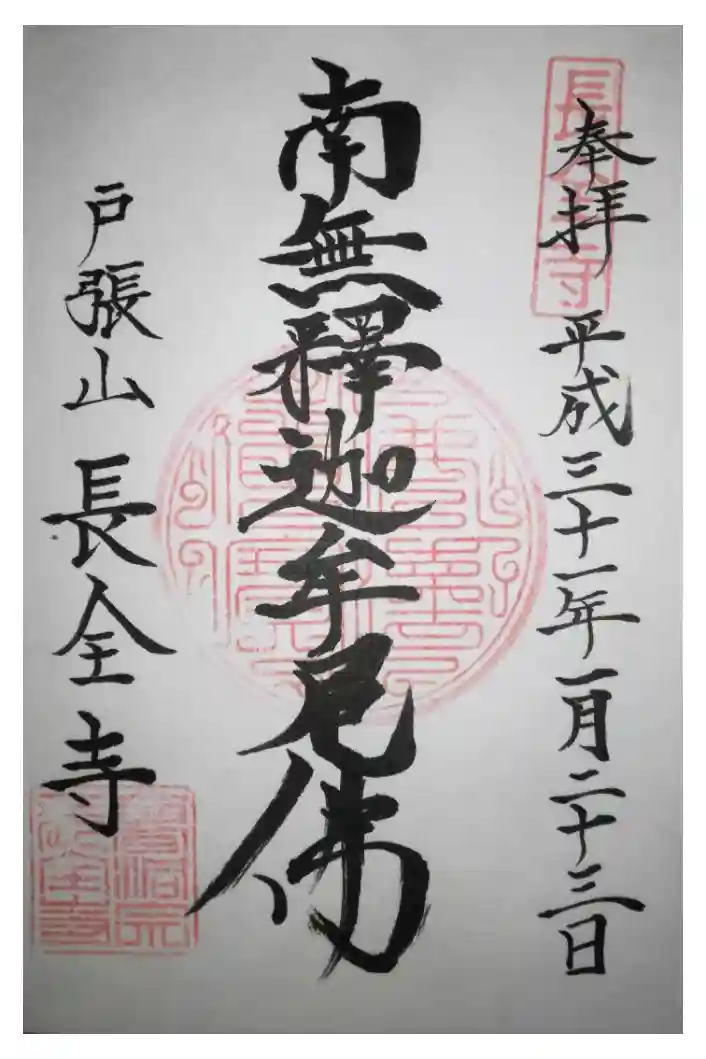 奉拝 平成三十一年一月二十三日
南無釋迦牟尼佛
戸張山 長全寺
長全寺